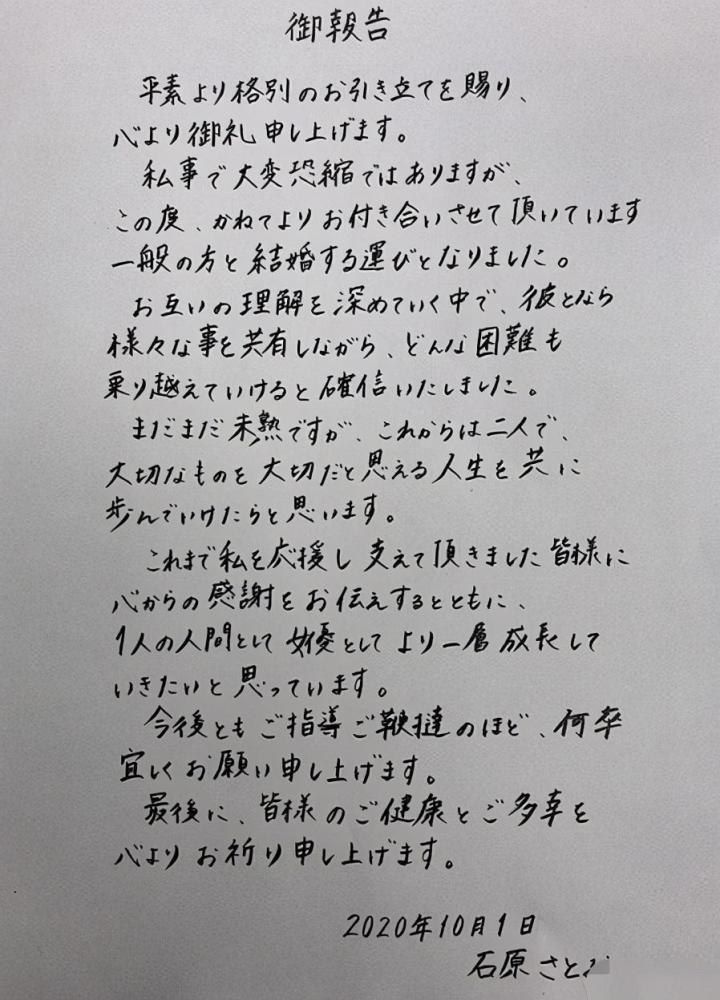 御報告
平素より格別のお引き立てを賜り、
心より御礼申し上げます。
私事で大変恐縮ではありますが、
この度、かねてよりお付き合いさせて頂いています
一般の方と結婚する運びとなりました。
お互いの理解を深めていく中で、彼となら
様々な事を共有しながら、どんな困難も
乗り越えていけると確信いたしました。
まだまだ未熟ですが、これからは二人で、
大切なものを大切だと思える人生を共に
歩んでいけたらと思います。
これまで私を応援し支えて頂きました皆様に
心からの感謝をお伝えするとともに、
1人の人間として女優としてより一層成長して
いきたいと思っています。
今後ともご指導ご鞭撻のほど、何卒
宜しくお願い申し上げます。
最後に、皆様のご健康とご多幸を
心よりお祈り申し上げます。
2020年10月1日
石原さと